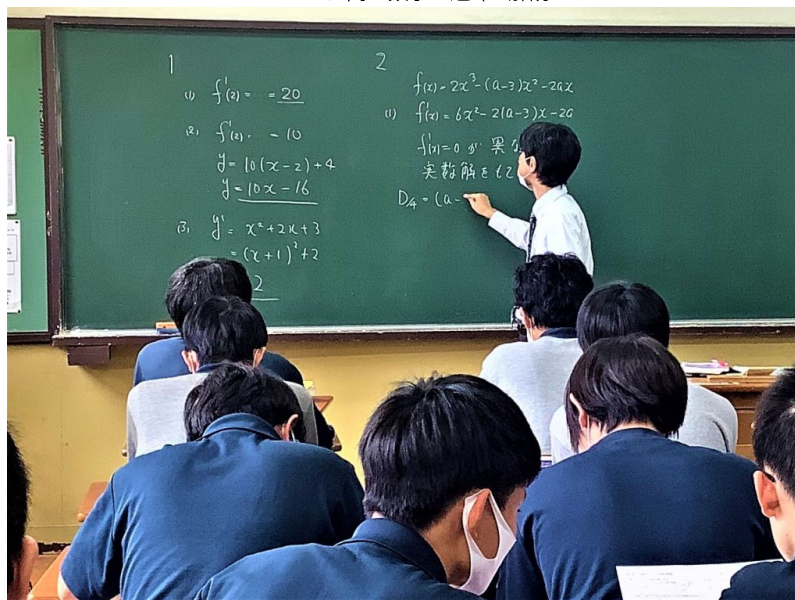 1
(1) f'(2) = … = 20
(2) f'(2) = … = 10
y = 10(x-2)+4
y = 10x-16
(3) y' = x²+2x+3
= (x+1)²+2
2
2
f(x) = 2x³-(a-3)x²-2ax
(1) f'(x) = 6x²-2(a-3)x-2a
f'(x)=0 が 異な
実数解をもつ
D/4 = (a-